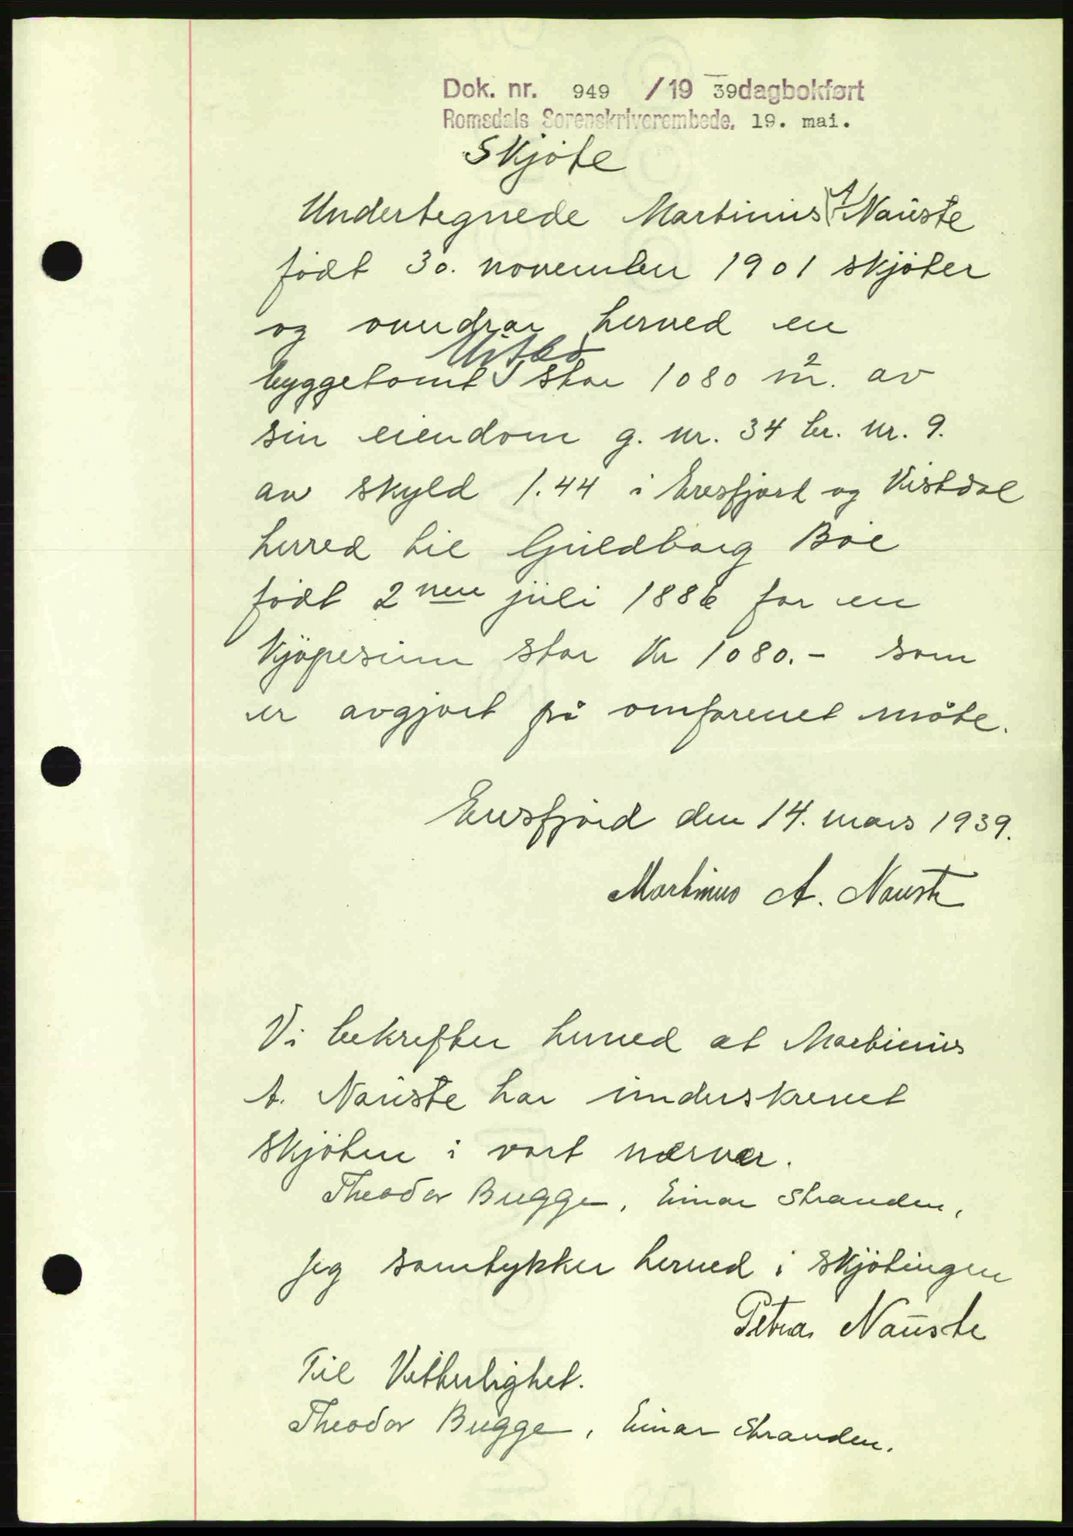 Dok. nr. 949 /19 39 dagbokført
Romsdals Sorenskriverembede. 19. mai.
Skjöte
Undertegnede Martinius A. Nauste
födt 30. november 1901 skjöter
og overdrar herved en
byggetomt Utbö stor 1080 m². av
sin eiendom g. nr. 34 br. nr. 9.
av skyld 1.44 i Eresfjord og Vistdal
herred til Guldborg Böe
födt 2 nen juli 1886 for en
kjöpesum stor Kr 1080.- som
er avgjort på omforenet måte.
Eresfjord den 14. mars 1939.
Martinus A. Nauste
Vi bekrefter herved at Martinius
A. Nauste har underskrevet
skjöten i vort nærvær.
Theodor Bugge, Einar Stranden,
Jeg samtykker herved i skjötingen
Petra Nauste
Til Vitterlighet.
Theodor Bugge, Einar Stranden.